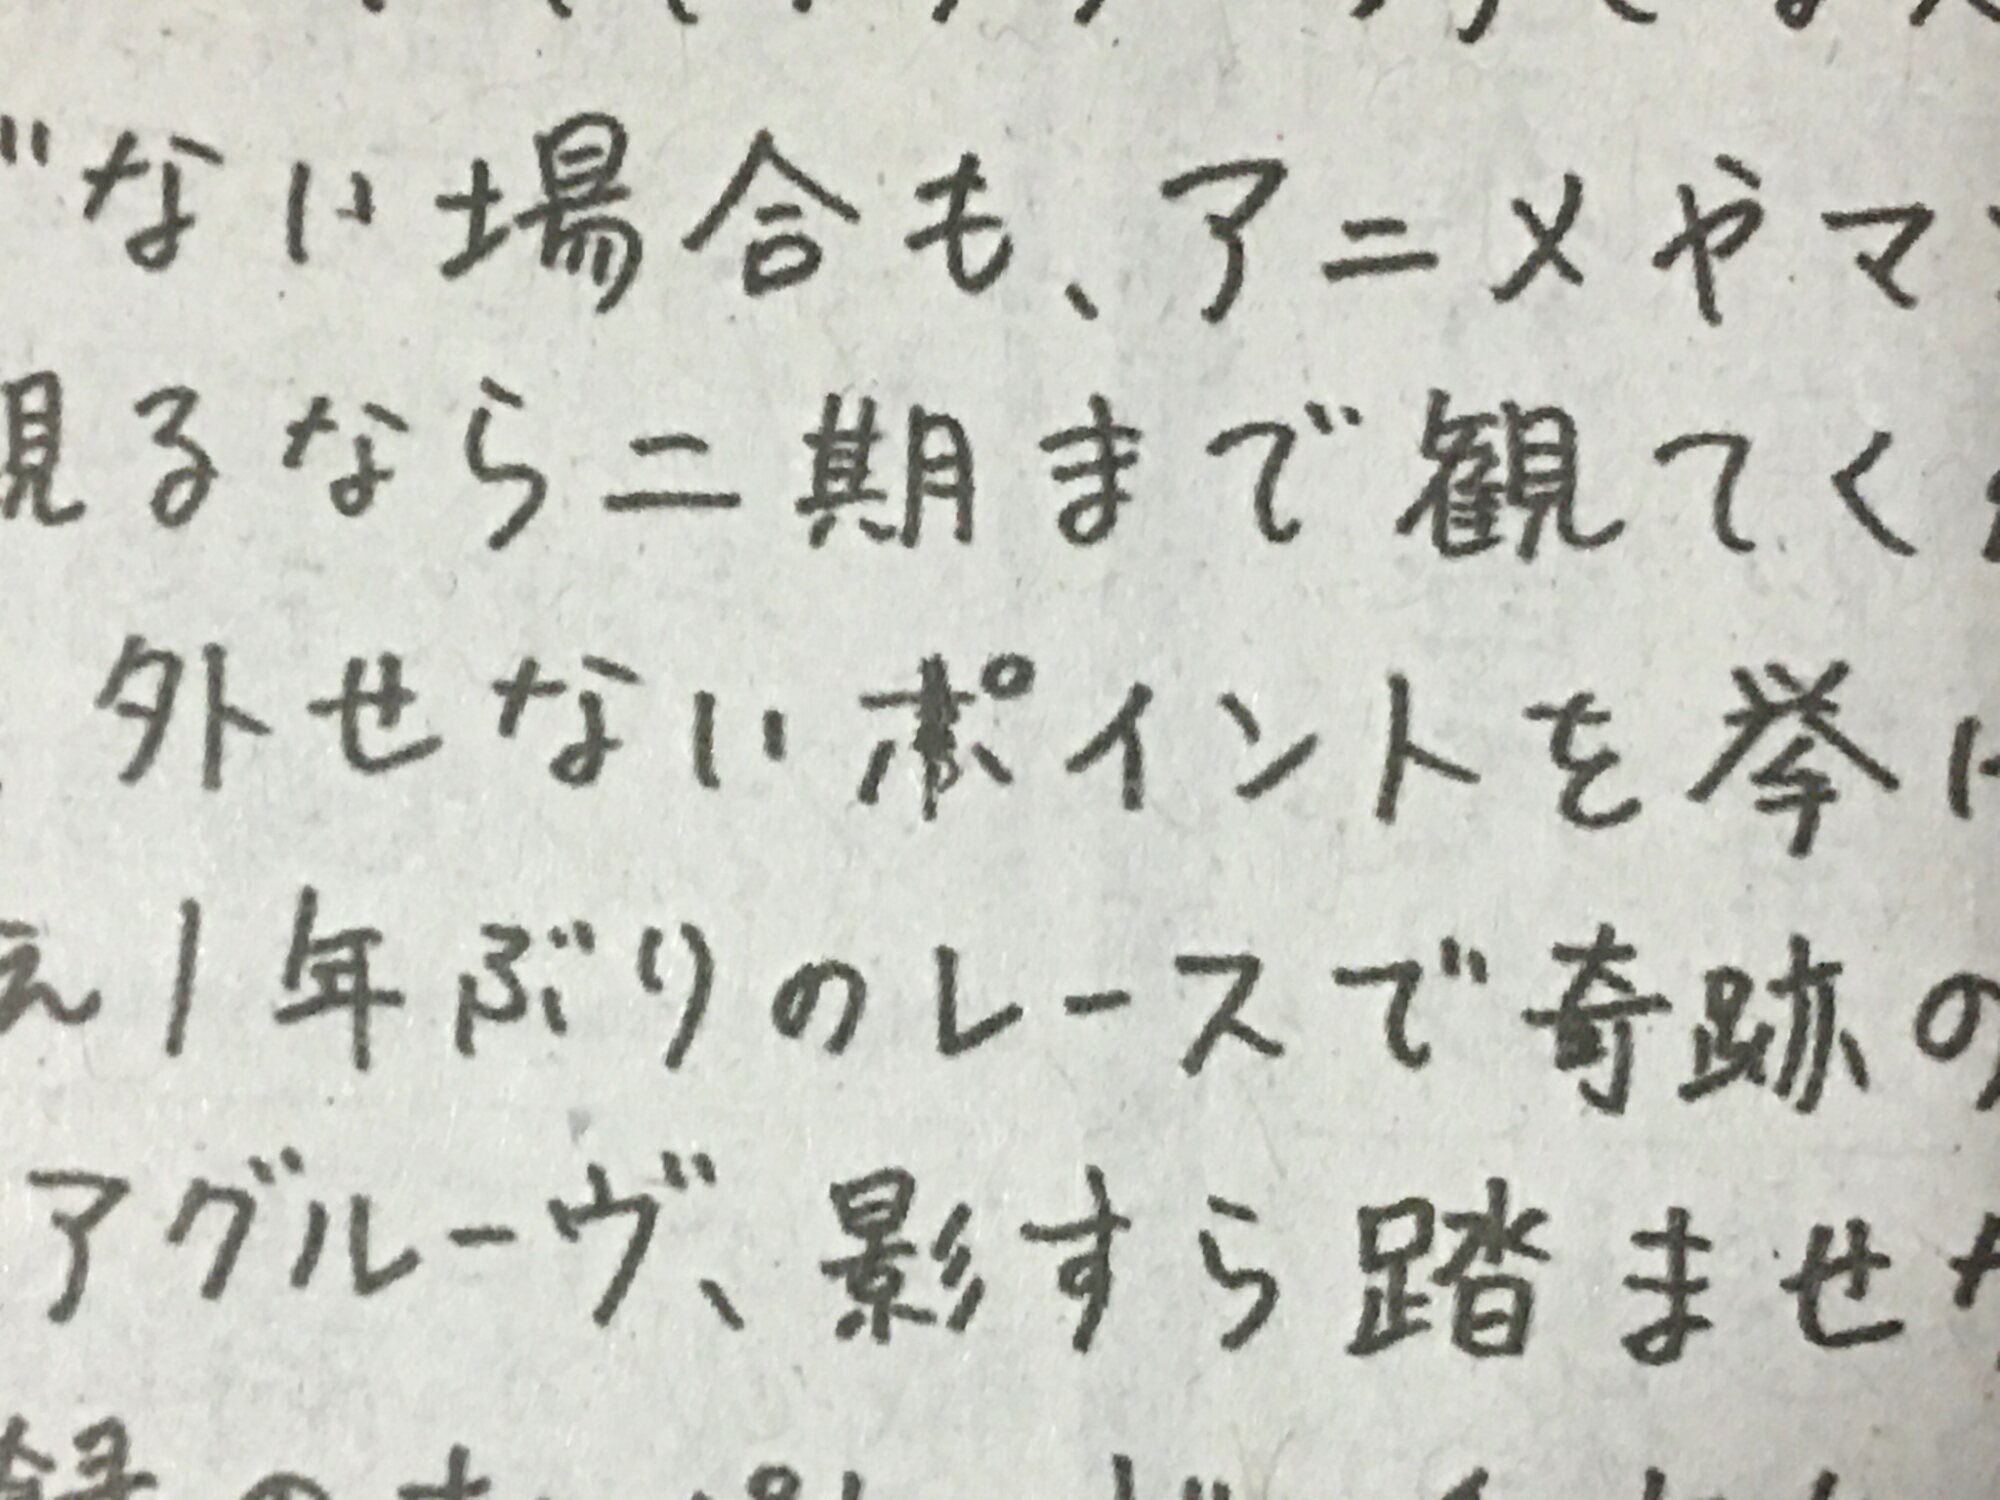 ない場合も、アニメやマ
観るなら二期まで観てく
外せないポイントを挙げ
え1年ぶりのレースで奇跡の
アグルーヴ、影すら踏ませ